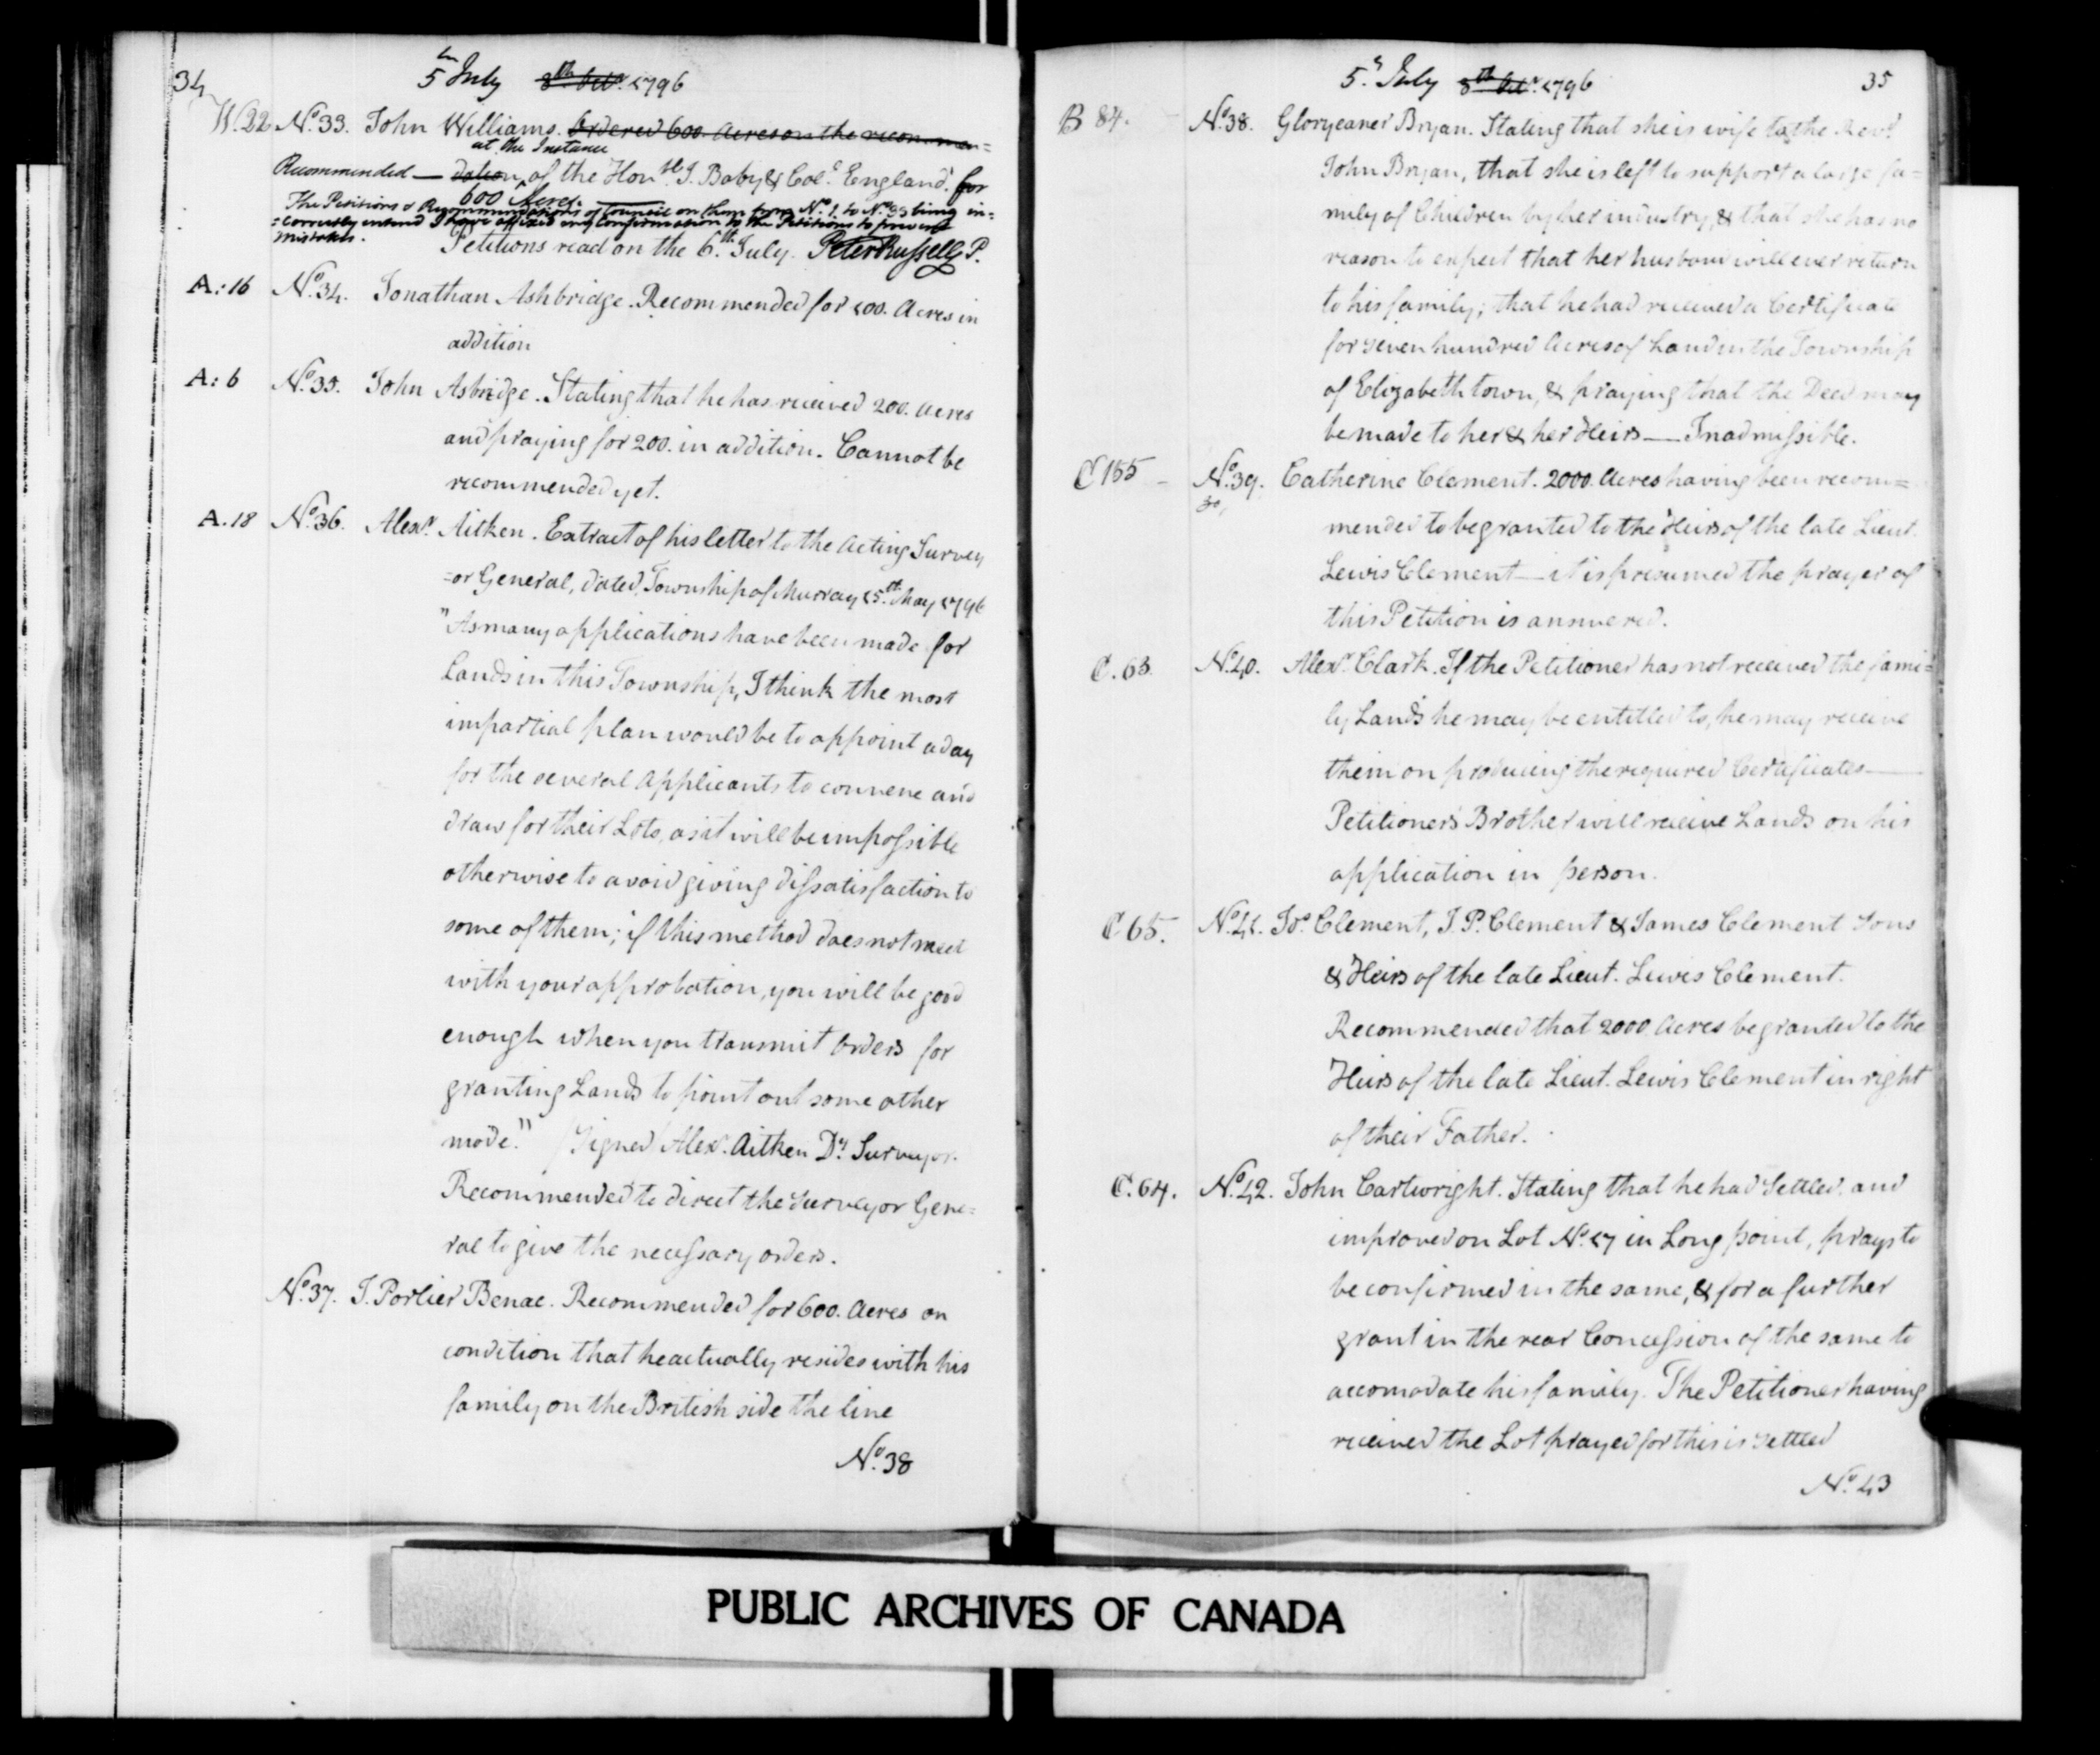 34
5th July 8th Octr. 1796
W.22 No. 33. John Williams. Ordered 600. Acres on the recommen=
at the Instance
Recommended — dation, of the Honble J. Baby & Col. England. for
600 Acres.
The Petitions & Recommendations of Council on them from No. 1. to No. 33 being in=
=correctly entered I have affixed my Confirmation to the Petitions to prevent
mistakes.
Petitions read on the 6th July. Peter Russell P.
A:16 No. 34. Jonathan Ashbridge. Recommended for 100. Acres in
addition
A:6 No. 35. John Asbridge. Stating that he has received 200. Acres
and praying for 200. in addition. Cannot be
recommended yet.
A.18 No. 36. Alexr. Aitken. Extract of his letter to the Acting Survey
=or General, dated, Township of Murray 15th May 1796
"As many applications have been made for
Lands in this Township, I think the most
impartial plan would be to appoint a day
for the several Applicants to convene and
draw for their Lots, as it will be impossible
otherwise to avoid giving dissatisfaction to
some of them; if this method does not meet
with your approbation, you will be good
enough when you transmit Orders for
granting Lands to point out some other
mode." (Signed) Alexr. Aitken Dy. Surveyor.
Recommended to direct the Surveyor Gene=
ral to give the necessary orders.
No. 37. J. Porlier Benac. Recommended for 600. Acres on
condition that he actually resides with his
family on the British side the line
No. 38
5th July 8th Octr. 1796
35
B 84. No. 38. Gloryeaner Bryan. Stating that she is wife to the Revd.
John Bryan, that she is left to support a large fa=
mily of Children by her industry, & that she has no
reason to expect that her husband will ever return
to his family; that he had received a Certificate
for seven hundred Acres of Land in the Township
of Elizabeth town, & praying that the Deed may
be made to her & her Heirs — Inadmissible.
C 155 — No. 39. Catherine Clement. 2000. Acres having been recom=
mended to be granted to the Heirs of the late Lieut.
Lewis Clement — it is presumed the prayer of
this Petition is answered.
C. 63. No. 40. Alexr. Clark. If the Petitioner has not received the fami=
ly Lands he may be entitled to, he may receive
them on producing the required Certificates —
Petitioners Brother will receive Lands on his
application in person.
C 65. No. 41. Jos. Clement, J. P. Clement & James Clement Sons
& Heirs of the late Lieut. Lewis Clement.
Recommended that 2000 Acres be granted to the
Heirs of the late Lieut. Lewis Clement in right
of their Father.
C. 64. No. 42. John Cartwright. Stating that he had Settled and
improved on Lot No. 17 in Long point, prays to
be confirmed in the same, & for a further
grant in the rear Concession of the same to
accomodate his family. The Petitioner having
received the Lot prayed for this is settled
No. 43
PUBLIC ARCHIVES OF CANADA